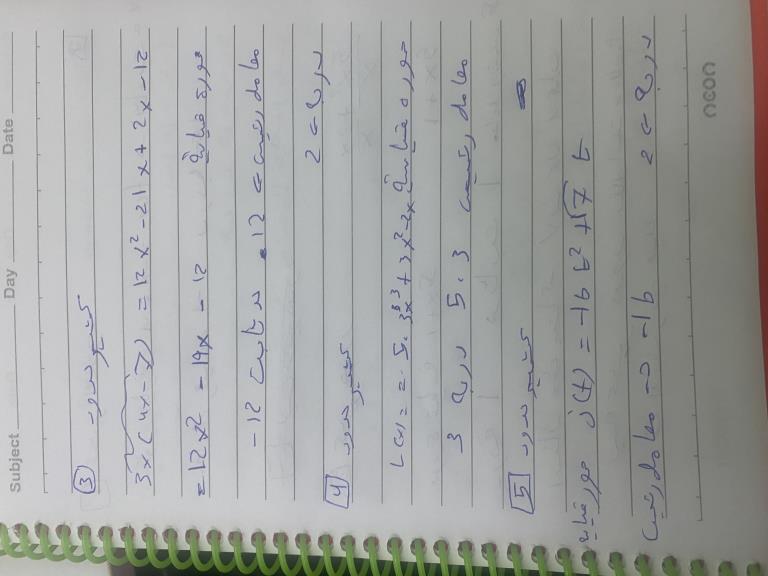 Subject Day Date
③ كثير حدود
3x(4x-7) = 12x² -21x + 2x -12
= 12x² - 19x - 12 صورة قياسية
-12 ثابت 12 ← معامل رئيسي
2 ← درجة
4 كثير حدود
3x³ + 3x² - 2x صورة قياسية
3 درجة 5.3 معامل رئيسي
5 كثير حدود
صورة قياسية j(t) = -16 t² + √7 t
معامل رئيسي → -16 2 ← درجة
noon